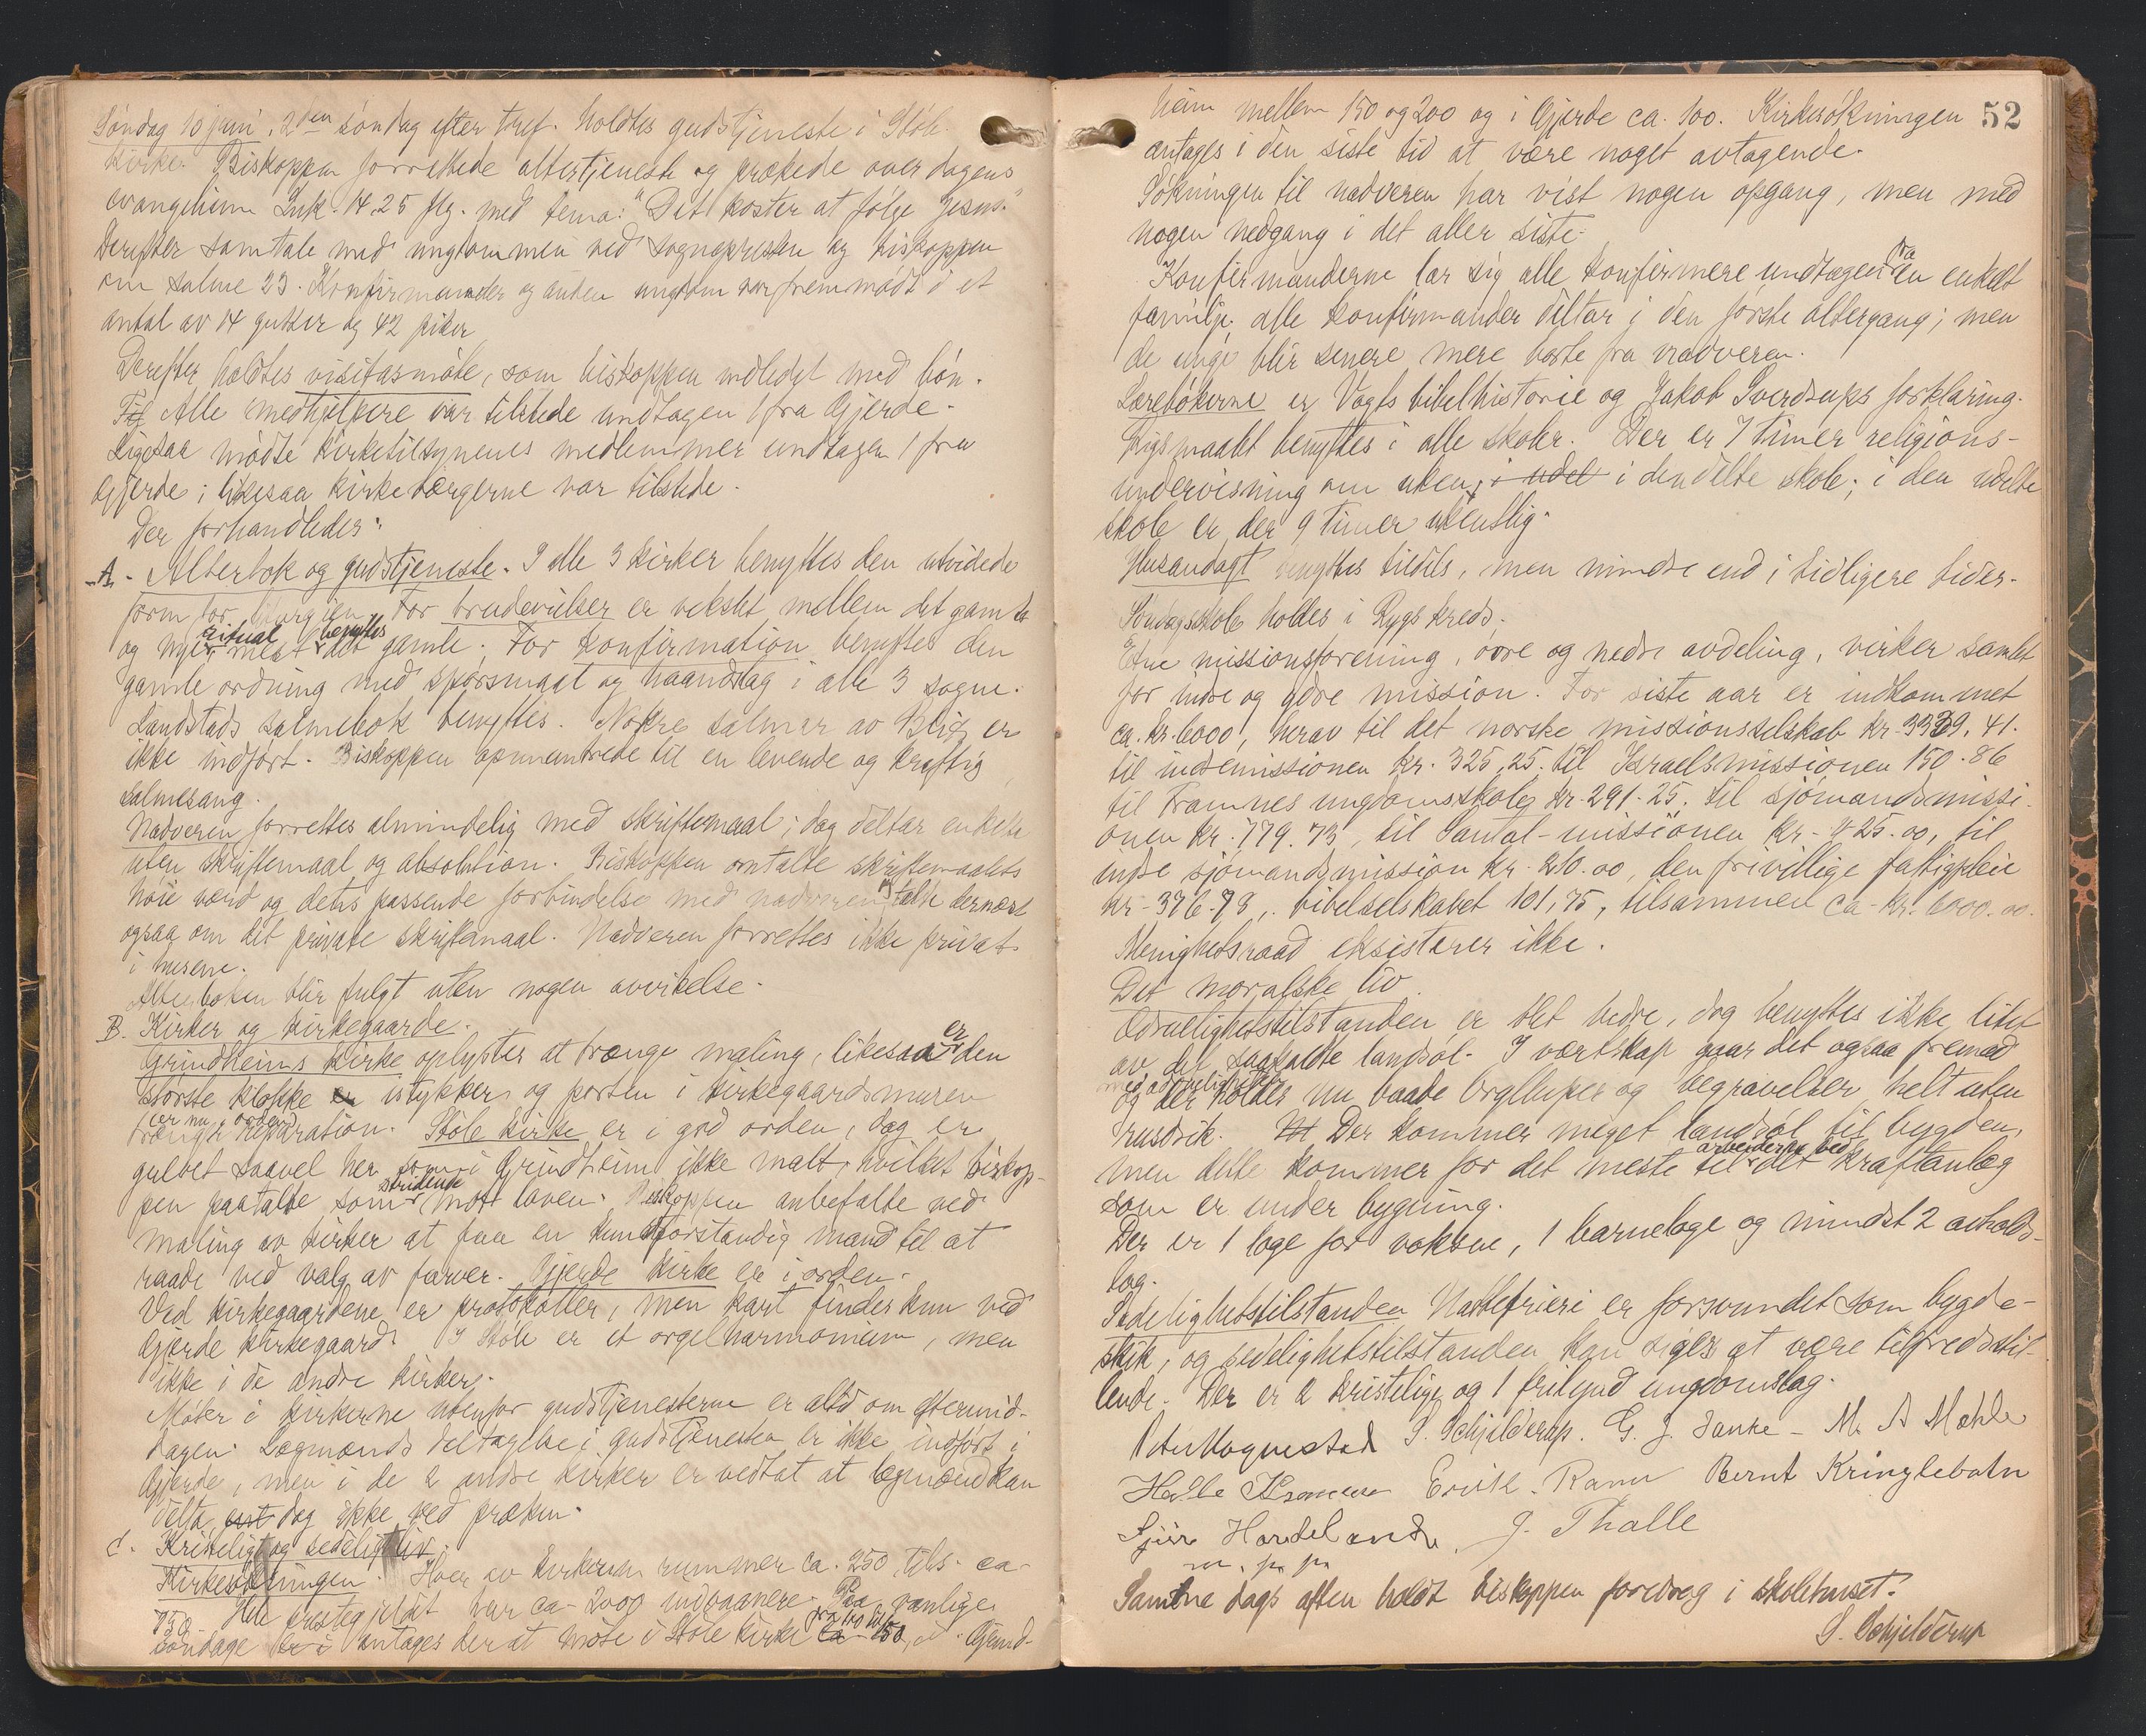 Søndag 10 juni. 2den søndag efter tref. holdtes gudstjeneste i Støle
kirke. Biskoppen forrettede altertjeneste og prækede over dagens
evangelium Luk. 14.25 flg. med tema: "Det koster at følge Jesus."
Derefter samtale med ungdommen ved sognepresten og biskoppen
om salme 23. Konfirmander og anden ungdom var fremmødt i et
antal av 14 gutter og 42 piker
Derefter holdtes visitasmøte, som biskoppen indledet med bøn.
Til Alle medhjælpere var tilstede undtagen 1 fra Gjerde.
Ligesaa mødte kirketilsynenes medlemmer undtagen 1 fra
Gjerde; likesaa kirkeværgerne var tilstede.
Der forhandledes:
A. Alterbok og gudstjeneste. I alle 3 kirker benyttes den utvidede
form for liturgien. For brudevielser er vekslet mellem det gamle
og nye ritual, mest benyttes det gamle. For konfirmation benyttes den
gamle ordning med spørsmaal og haandslag i alle 3 sogne.
Landstads salmebok benyttes. Nokre salmar av Blix er
ikke indført. Biskoppen opmuntrede til en levende og kraftig
salmesang.
Nadveren forrettes almindelig med skriftemaal; dog deltar enkelte
uten skriftemaal og absolution. Biskoppen omtalte skriftemaalets
høie værd og dets passende forbindelse med nadveren, talte dernæst
ogsaa om det private skriftemaal. Nadveren forrettes ikke privat
i husene.
Alterboken blir fulgt uten nogen avvikelse.
B. Kirker og kirkegaarde.
Grindheims kirke oplystes at trænge maling, likesaa er den
største klokke er istykker og porten i kirkegaardsmuren
trænger reparation. (er nu i orden) Støle kirke er i god orden, dog er
gulvet saavel her som i Grindheim ikke malt, hvilket biskop-
pen paatalte som stridende mot loven. Biskoppen anbefalte ved
maling av kirker at faa en kunstforstandig mand til at
raade ved valg av farver. Gjerde kirke er i orden.
Ved kirkegaardene er protokoller, men kart findes kun ved
Gjerde kirkegaard. I Støle er et orgelharmonium, men
ikke i de andre kirker.
Møter i kirkerne utenfor gudstjenesterne er altid om eftermid-
dagen. Lægmænds deltagelse i gudstjenesten er ikke indført i
Gjerde, men i de 2 andre kirker er vedtat at lægmænd kan
delta, dog ikke ved præken.
C. Kristeligt og sedeligt liv.
Kirkesøkningen. Hver av kirkerne rummer ca. 250, tils. ca.
750. Hele prestegjeldet har ca. 2000 indvaanere. Paa vanlige
søndage antages der at møte i Støle kirke fra 100 til 150, i Grind-
52
heim mellem 150 og 200 og i Gjerde ca. 100. Kirkesøkningen
antages i den siste tid at være noget avtagende.
Søkningen til nadveren har vist nogen opgang, men med
nogen nedgang i det aller siste.
Konfirmanderne lar sig alle konfirmere undtagen fra en enkelt
familje. Alle konfirmander deltar i den første altergang; men
de unge blir senere mere borte fra nadveren.
Lærebøkerne er Vogts bibelhistorie og Jakob Sverdrups forklaring.
Rigsmaalet benyttes i alle skoler. Der er 7 timer religions-
undervisning om uken, i udel i den delte skole; i den udelte
skole er der 9 timer ukentlig.
Husandagt benyttes tildels, men mindre end i tidligere tider.
Søndagsskole holdes i Rygs kreds.
Etne missionsforening, øvre og nedre avdeling, virker samlet
for indre og ydre mission. For siste aar er indkommet
ca. kr. 6000, herav til det norske missionsselskab kr. 3339.41.
til indremissionen kr. 325.25. til Israelsmissionen 150.86
til Framnes ungdomsskole kr. 291.25. til sjømandsmissi-
onen kr. 779.73, til Santal-missionen kr. 425.00, til
indre sjømandsmission kr. 210.00, den frivillige fattigpleie
kr. 376.78, bibelselskabet 101,75, tilsammen ca. kr. 6000.00.
Menighetsraad eksisterer ikke.
Det moralske liv.
Ædruelighetstilstanden er blet bedre, dog benyttes ikke litet
av det saakaldte landsøl. I vertskap gaar det ogsaa fremad
med ædruelighet og der holdes nu baade bryllupper og begravelser helt uten
rusdrik. Der kommer meget landsøl til bygden,
men dette kommer for det meste til arbeiderne ved det kraftanlæg
som er under bygning.
Der er 1 loge for voksne, 1 barneloge og mindst 2 avholds-
lag.
Sedelighetstilstanden Nattefrieri er forsvundet som bygde-
skik, og sedelighetstilstanden kan siges at være tilfredsstil-
lende. Der er 2 kristelige og 1 frilynd ungdomslag.
P. Schjelderup. G. J. Sanke - M. A. Mæhle
Halle Erik. Ramn Bernt Kringlebotn
Sjur Hardeland J. Thalle
m. p. p.
Samme dags aften holdt biskoppen foredrag i skolehuset.
P. Schjelderup